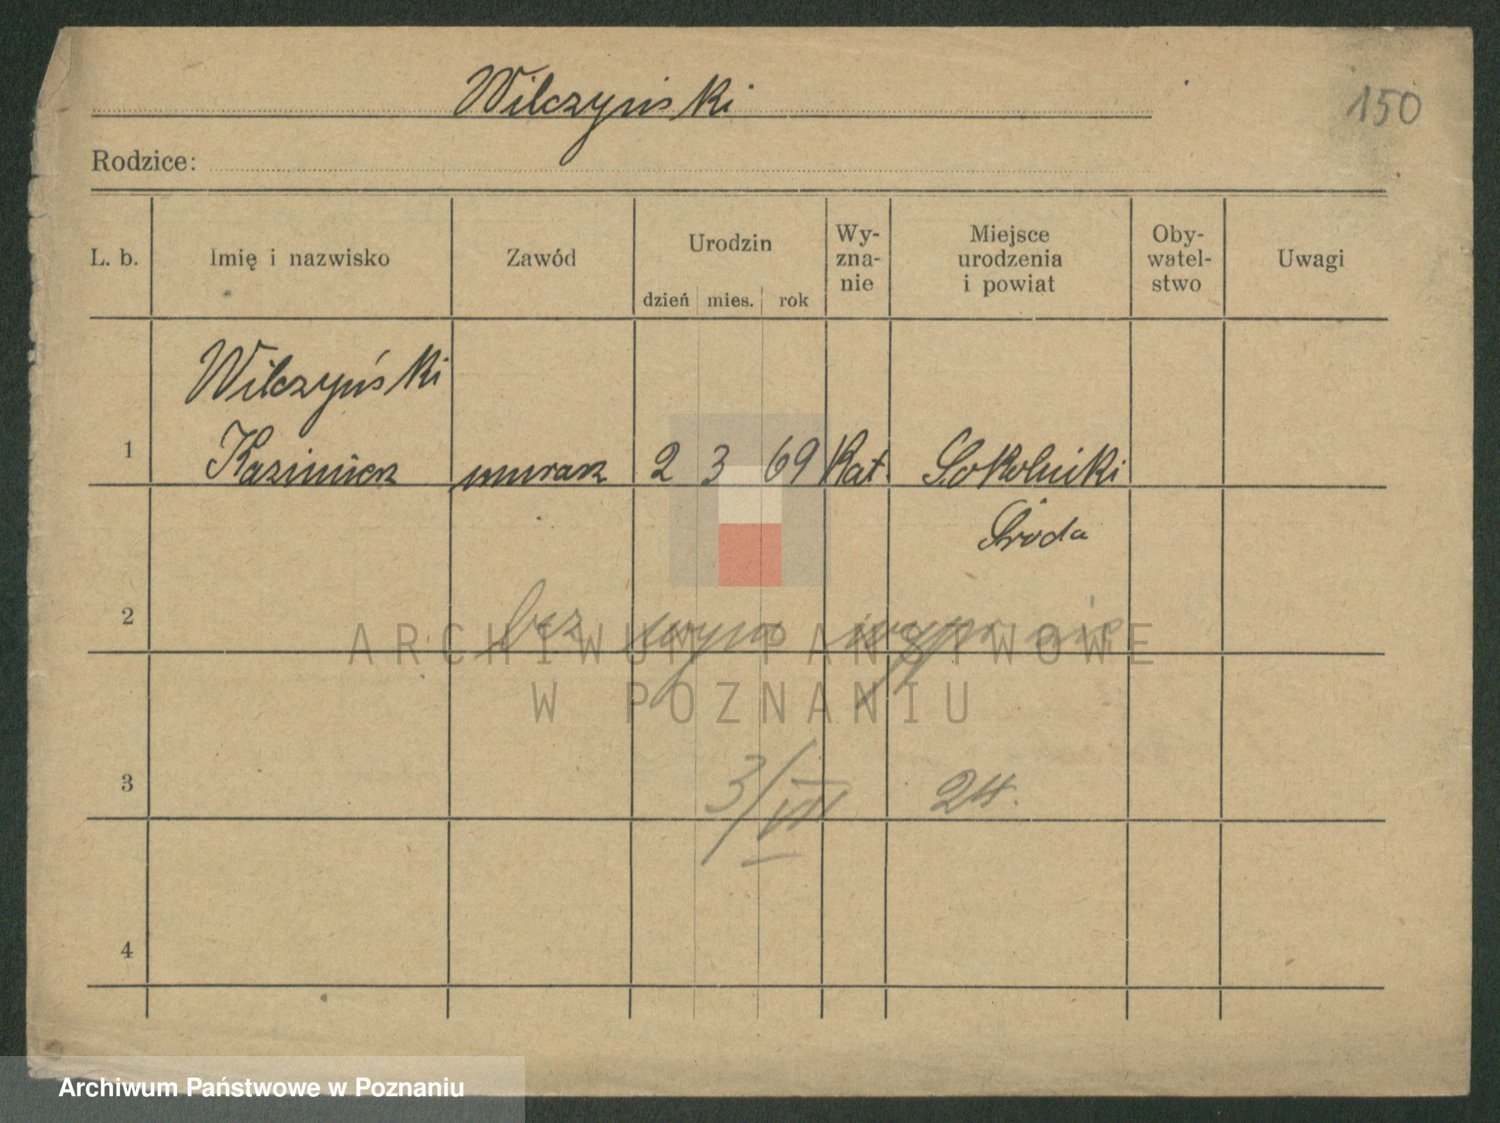 Wilczyński
150
Rodzice:
L. b. Imię i nazwisko Zawód Urodzin dzień mies. rok Wy-zna-nie Miejsce urodzenia i powiat Oby-watel-stwo Uwagi
Wilczyński
1 Kazimierz murarz 2 3 69 Kat. Sokolniki
Środa
2 bez
ARCHIWUM PAŃSTWOWE
W POZNANIU
3 3/VII 24.
4
Archiwum Państwowe w Poznaniu